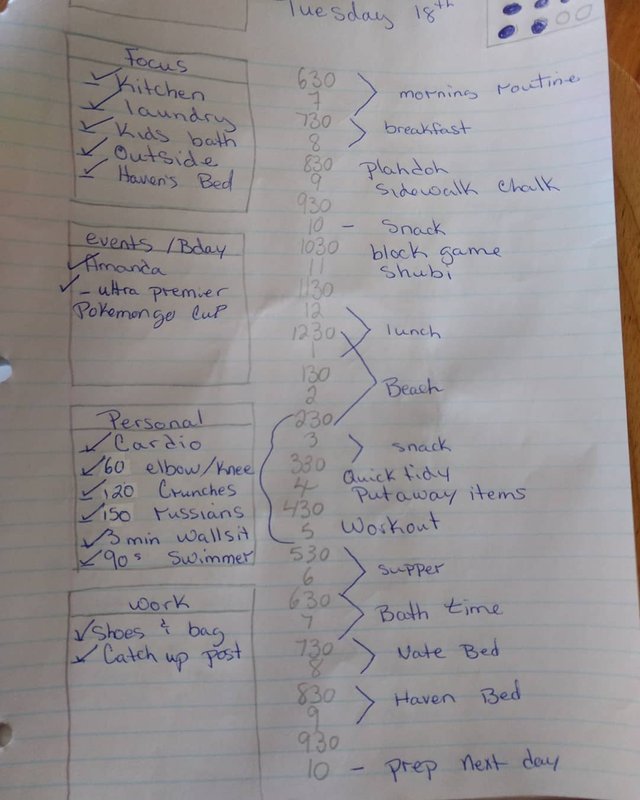 Tuesday 18th
Focus
Kitchen
laundry
Kids bath
Outside
Haven's Bed
events/Bday
Amanda
- ultra premier
Pokemongo Cup
Personal
Cardio
60 elbow/knee
120 Crunches
150 russians
3 min wallsit
90s Swimmer
work
Shoes & bag
Catch up post
630
7
morning routine
730
8
breakfast
830
9
930
Plahdoh
Sidewalk Chalk
10 - Snack
1030
11
1130
block game
Shubi
12
1230
1
lunch
130
2
230
Beach
3
330
snack
4
430
Quick tidy
Put away items
5
Workout
530
6
supper
630
7
Bath time
730
8
Nate Bed
830
9
Haven Bed
930
10 - prep next day